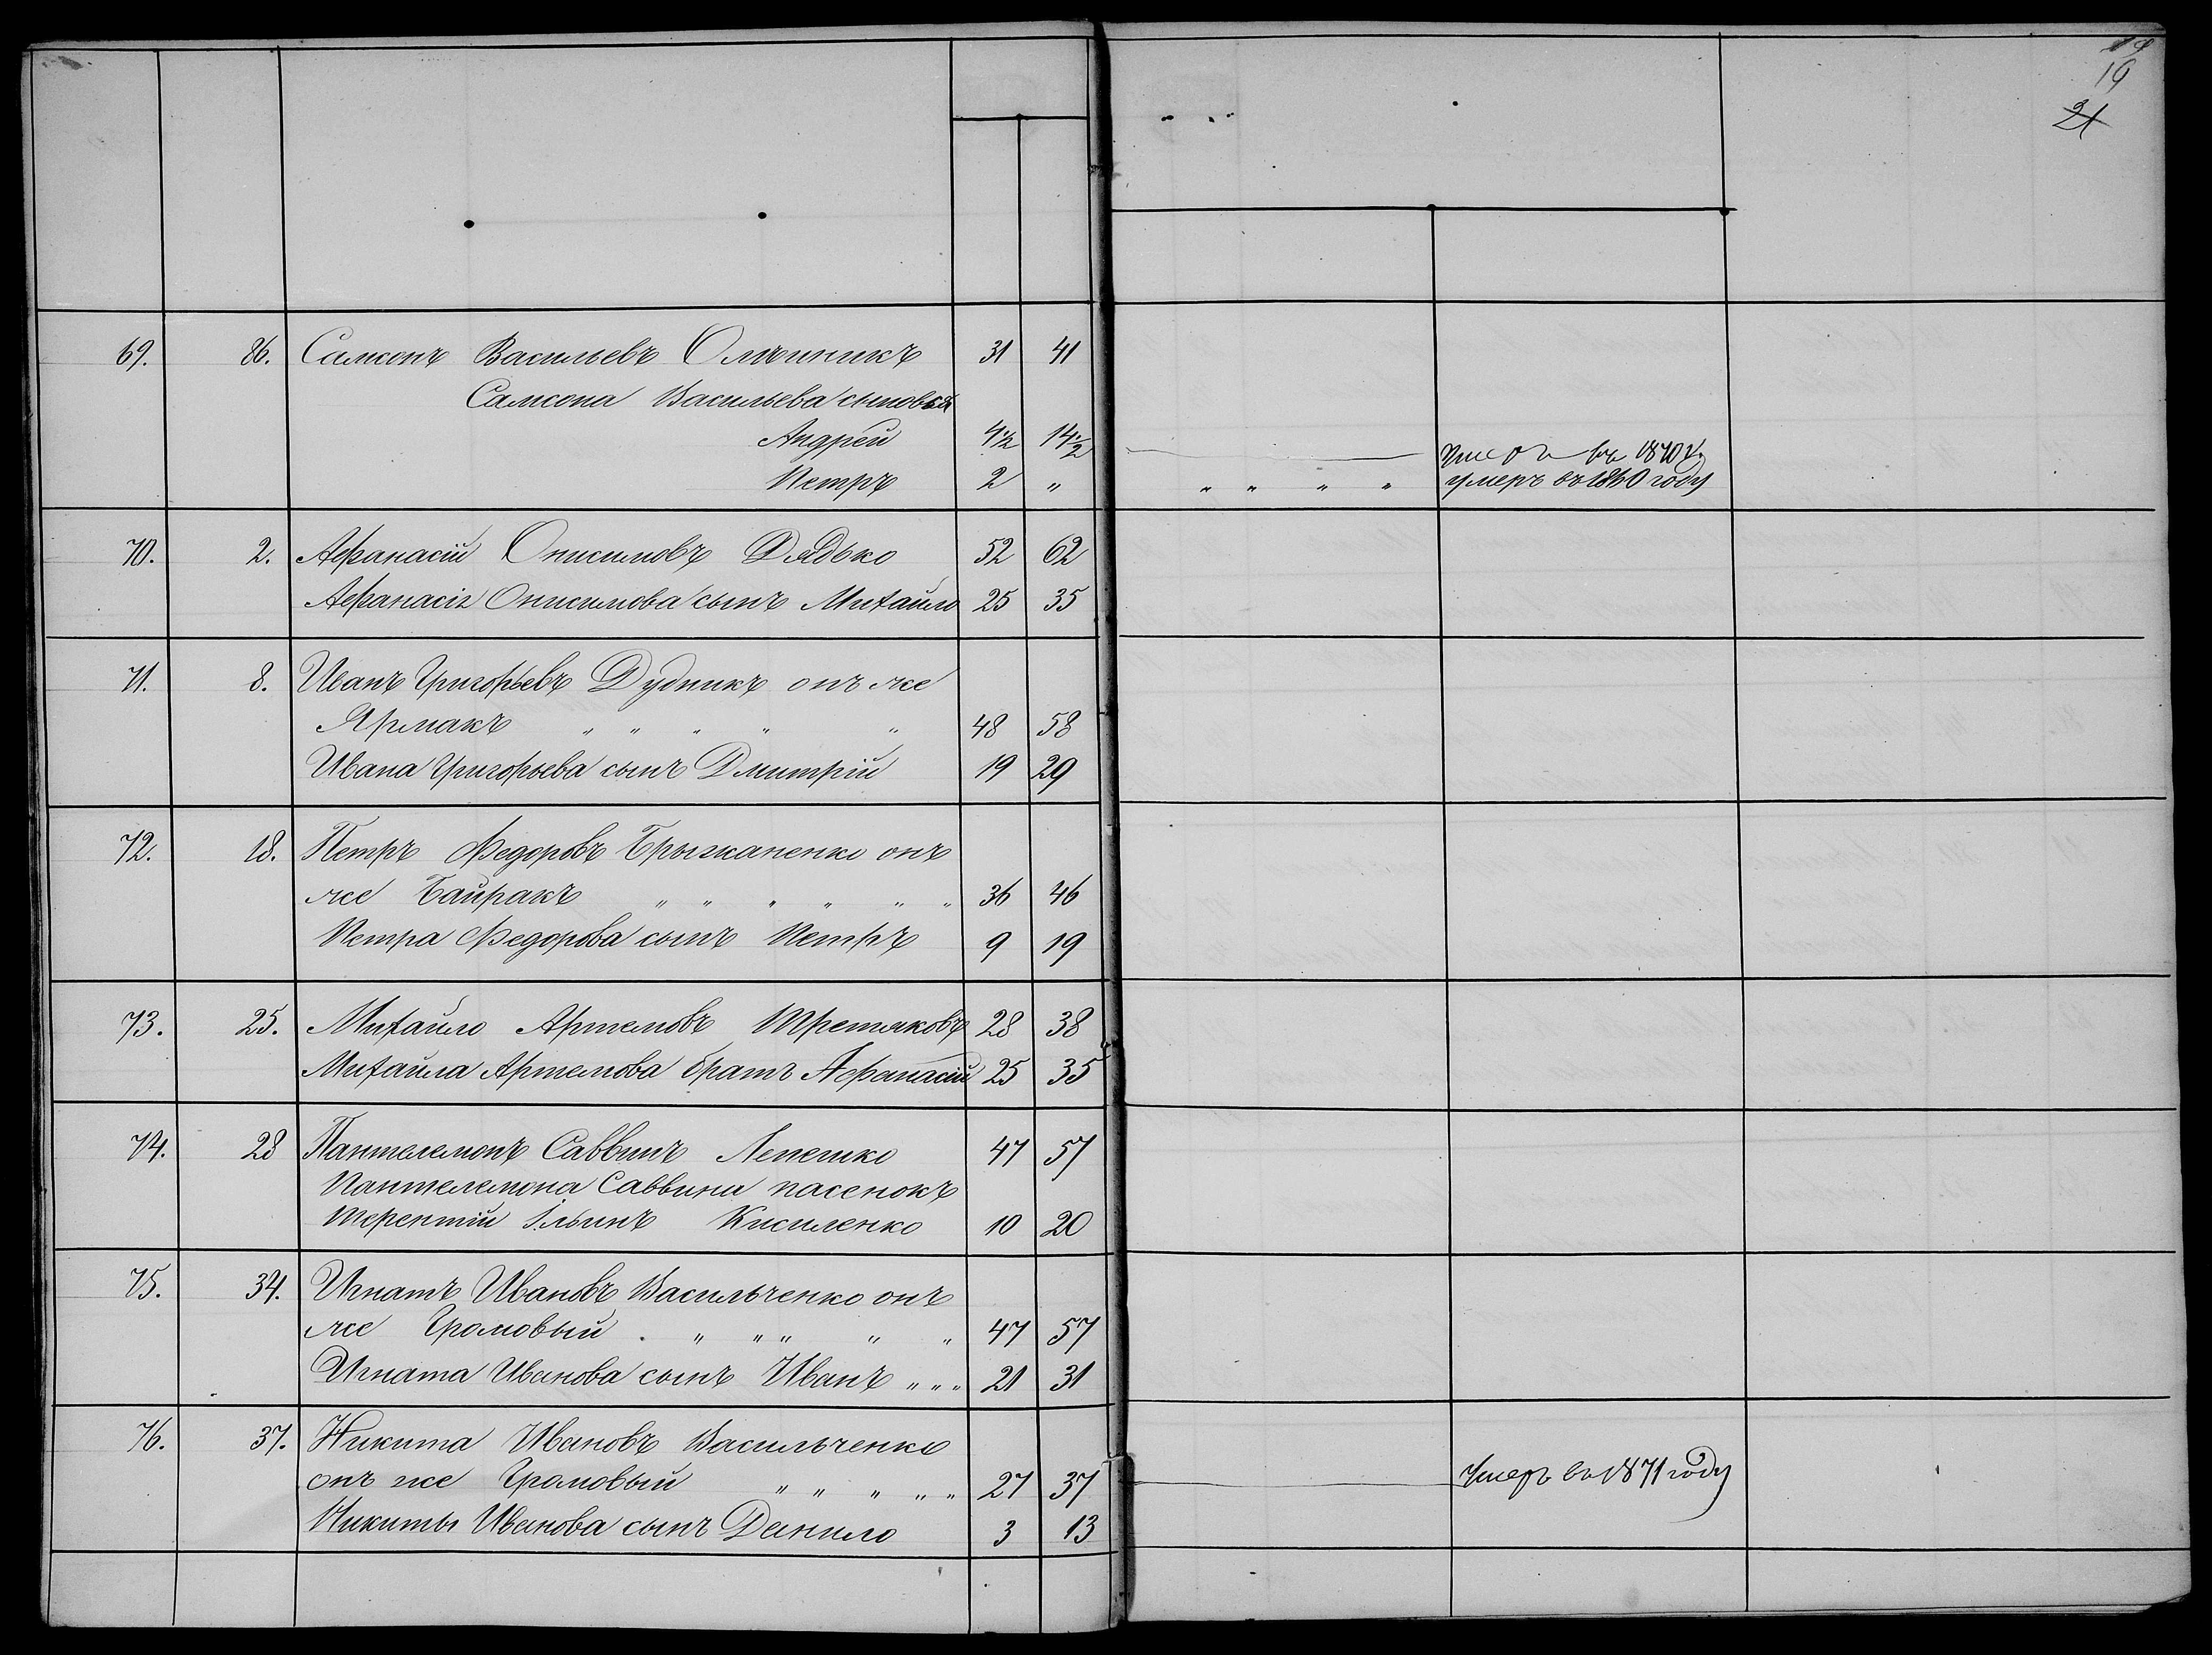 19
19
21
69. 86. Самсонъ Васильевъ Олѣиникъ 31 41
Самсона Васильева сыновья
Андрей 4½ 14½ умеръ въ 1870 г.
Петръ 2 " " " " " умеръ въ 1860 году
70. 2. Афанасій Онисимовъ Дядько 52 62
Афанасія Онисимова сынъ Михайло 25 35
71. 8. Иванъ Григорьевъ Дудникъ онъ же
Ярмакъ " " " " " 48 58
Ивана Григорьева сынъ Дмитрій 19 29
72. 18. Петръ Федоровъ Брыжаненко онъ
же Байракъ " " " " " " 36 46
Петра Федорова сынъ Петръ 9 19
73. 25. Михайло Артемовъ Третяковъ 28 38
Михайла Артемова братъ Афанасій 25 35
74. 28 Пантелемонъ Саввинъ Лепешко 47 57
Пантелемона Саввина пасенокъ
Терентій Ільинъ Кисиленко 10 20
75. 34. Игнатъ Ивановъ Васильченко онъ
же Громовый . " " " " " 47 57
Игната Иванова сынъ Иванъ " " " 21 31
76. 37. Никита Ивановъ Васильченко
онъ же Громовый " " " " " 27 37 Умеръ въ 1871 году
Никиты Иванова сынъ Данило 3 13